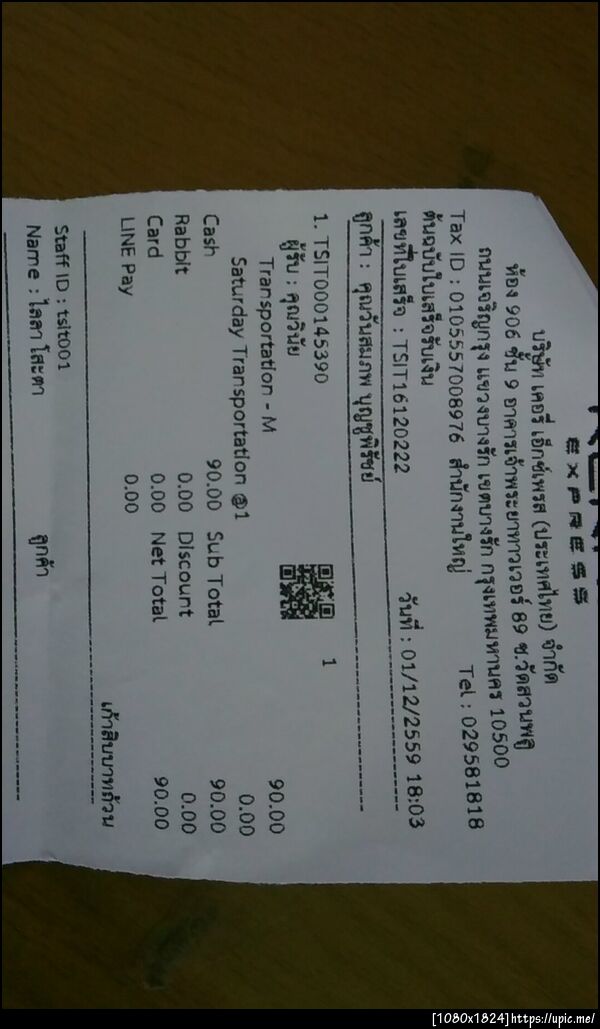 EXPRESS
บริษัท เคอรี่ เอ็กซ์เพรส (ประเทศไทย) จำกัด
ห้อง 906 ชั้น 9 อาคารเจ้าพระยาทาวเวอร์ 89 ซ.วัดสวนพลู
ถนนเจริญกรุง แขวงบางรัก เขตบางรัก กรุงเทพมหานคร 10500
Tax ID : 0105557008976 สำนักงานใหญ่ Tel : 029581818
ต้นฉบับใบเสร็จรับเงิน
เลขที่ใบเสร็จ : TSIT16120222 วันที่ : 01/12/2559 18:03
ลูกค้า : คุณวันสมภพ บุญชูพิรัชย์
1. TSIT000145390 1
ผู้รับ : คุณวินัย
Transportation - M 90.00
Saturday Transportation @1 0.00
Cash 90.00 Sub Total 90.00
Rabbit 0.00 Discount 0.00
Card 0.00 Net Total 90.00
LINE Pay 0.00
เก้าสิบบาทถ้วน
Staff ID : tsit001
Name : ไลลา โสะตา ลูกค้า
[1080x1824]https://upic.me/